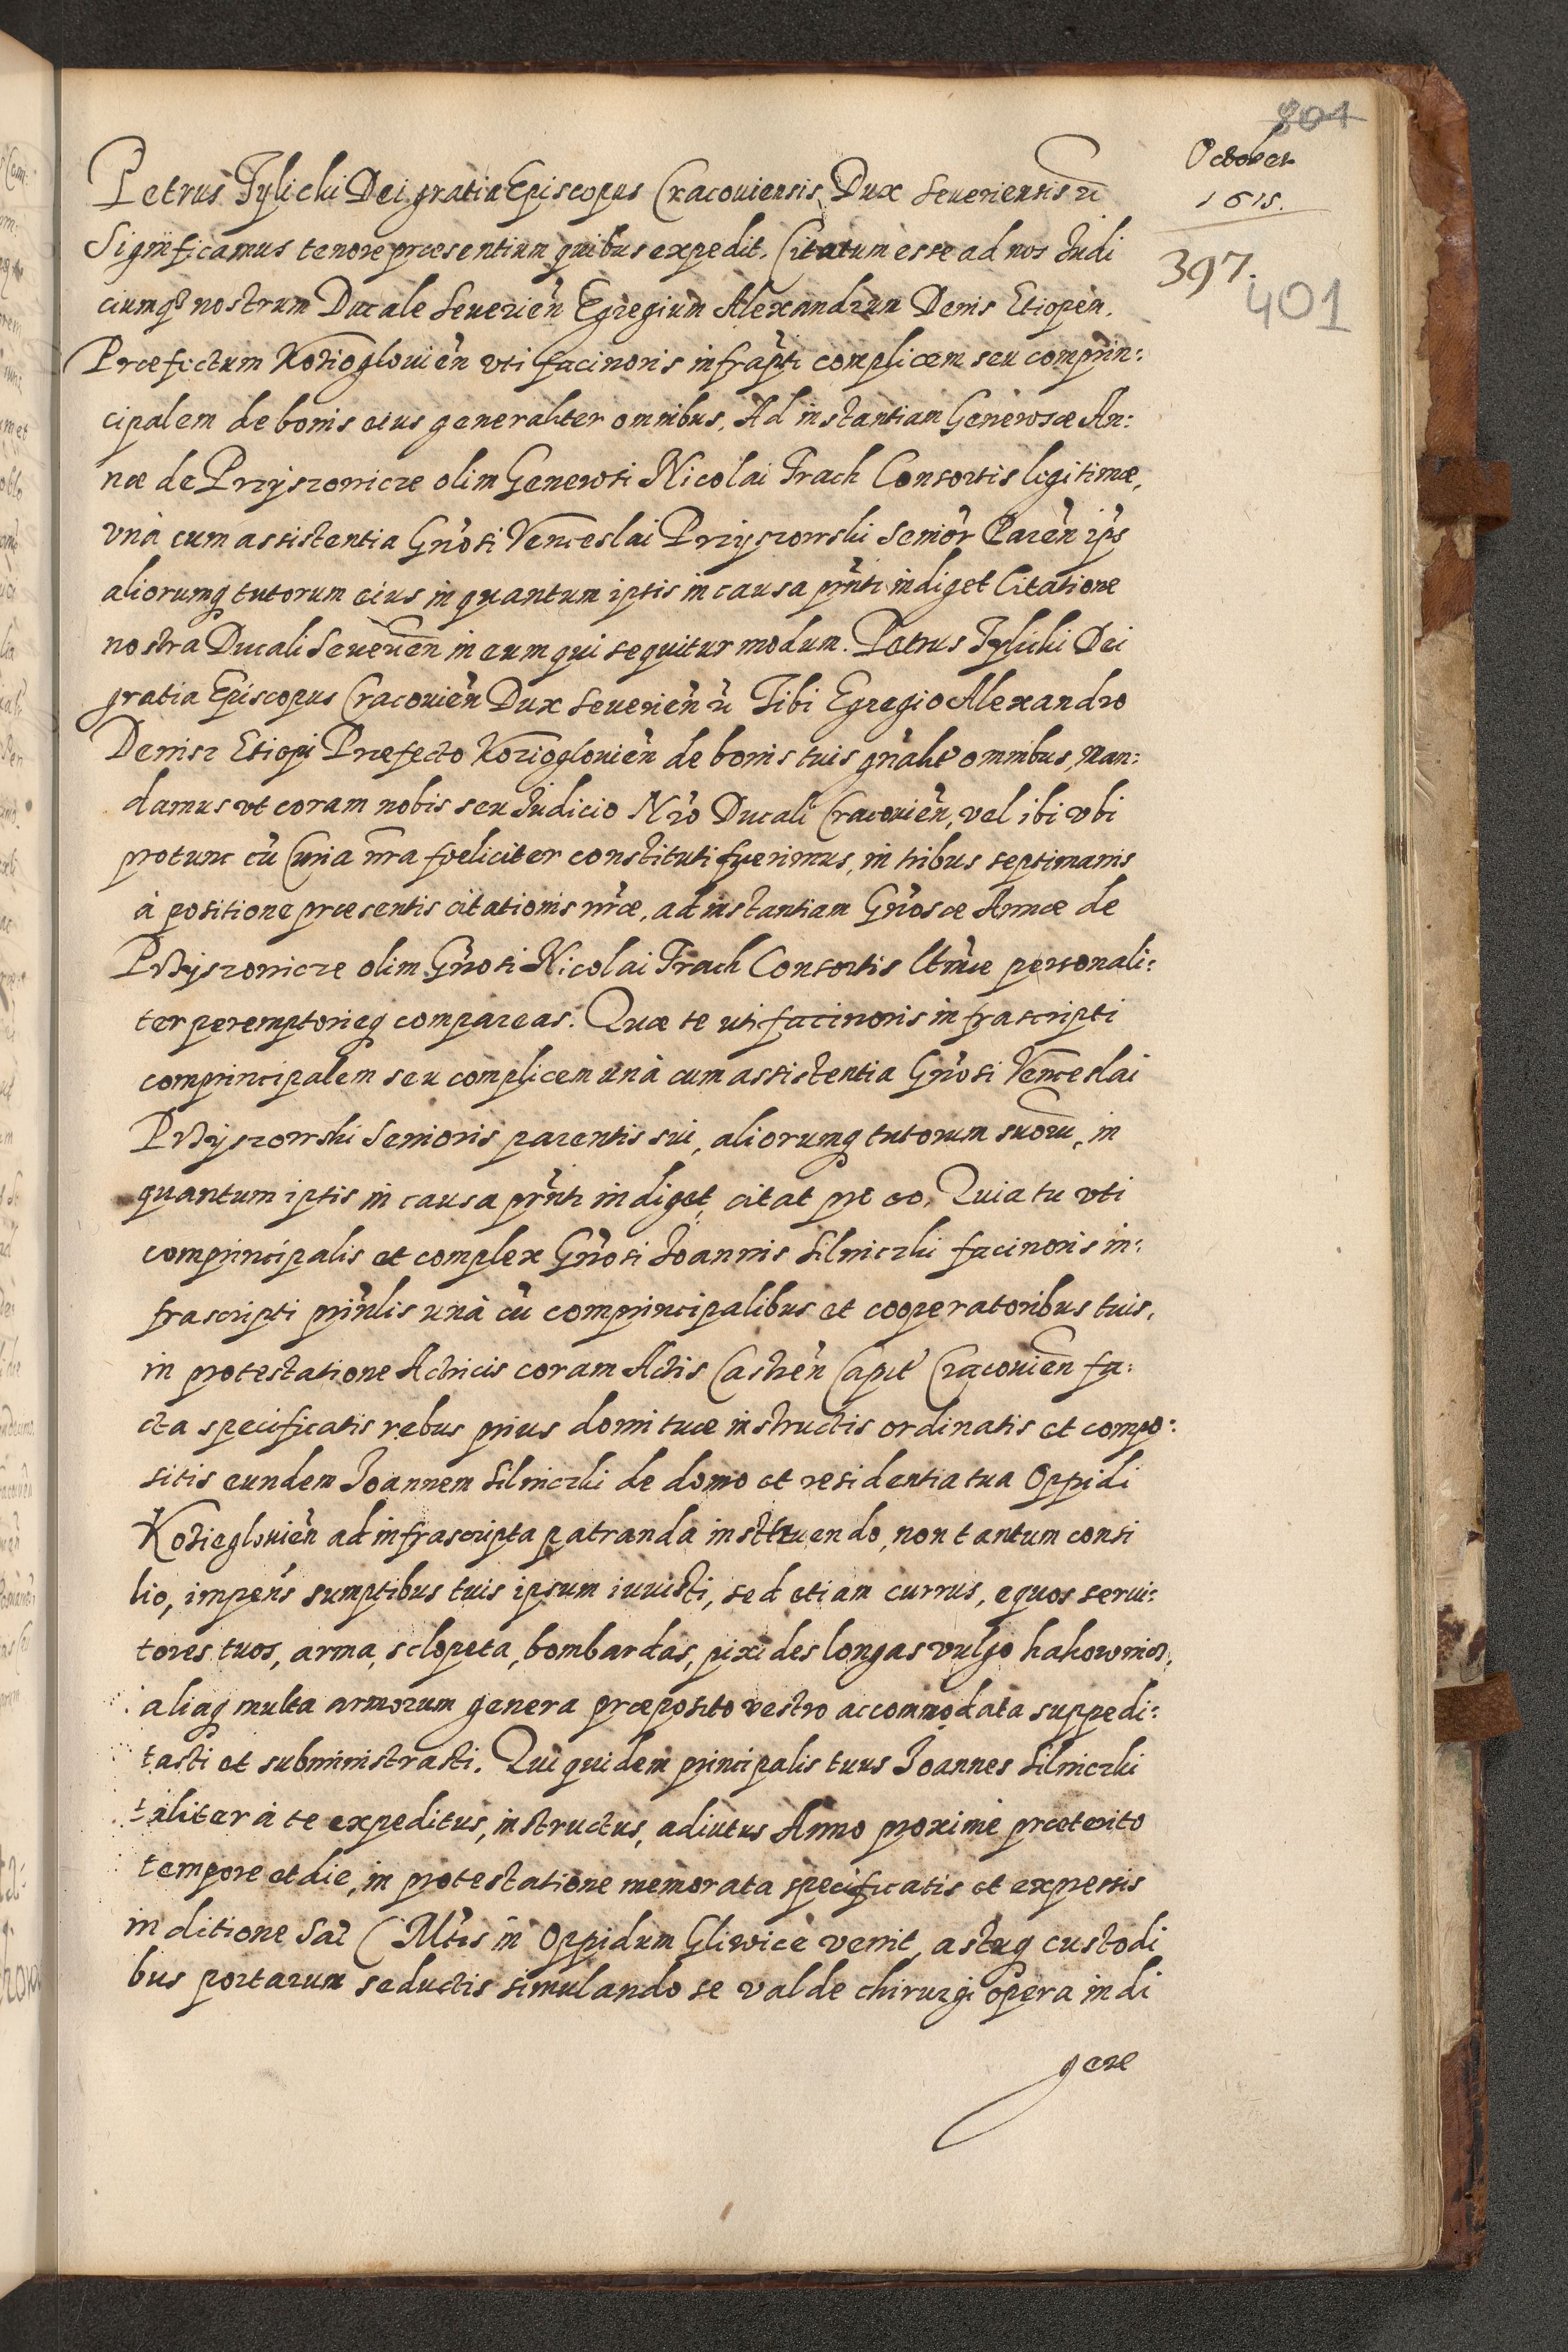 801
October
1615.
397.
401
Petrus Tylicki Dei gratia Episcopus Cracouiensis Dux Seueriensis rc
Significamus tenore præsentium quibus expedit. Citatum esse ad nos Iudi
ciumq nostrum Ducale Seuerien Egregium Alexandrum Denis Etiopen.
Præfectum Kozioglouien vti facinoris infrapti complicem seu comprin:
cipalem de bonis eius generaliter omnibus. Ad instantiam Generosæ An:
næ de Przyszowicze olim Generosi Nicolai Trach Consortis legitimæ,
vnà cum assistentia Gnosi Venceslai Przyszowski Senior Paren ips
aliorumq tutorum eius in quantum ipsis in causa pnti indiget Citatione
nostra Ducali Seuerien in eum qui sequitur modum. Petrus Tylicki Dei
gratia Episcopus Cracouien Dux Seuerien rc Tibi Egregio Alexandro
Denisz Etiopi Præfecto Kozioglouien de bonis tuis gnalit omnibus, Man:
damus vt coram nobis seu Iudicio Nro Ducali Cracouien, vel ibi vbi
protunc cu Curia nra fœliciter constituti fuerimus, in tribus septimanis
à positione præsentis citationis nræ, ad instantiam Gnosæ Annæ de
Przyszowicze olim Gnosi Nicolai Trach Consortis Ltmæ personali:
ter peremptorieq compareas. Quæ te uti facinoris infrascripti
comprincipalem seu complicem unà cum assistentia Gnosi Venceslai
Przyszowski Senioris parentis sui, aliorumq tutorum suoru, in
quantum ipsis in causa pnti indiget, citat pro eo. Quia tu vti
comprincipalis et complex Gnosi Joannis Silniczki facinoris in:
frascripti prinlis unà cu comprincipalibus et cooperatoribus tuis,
in protestatione Actricis coram Actis Castren Capit Cracouien fa:
cta specificatis rebus prius domi tuæ instructis ordinatis et compo:
sitis eundem Joannem Silniczki de domo et residentia tua Oppidi
Kozieglouien ad infrascripta patranda instruendo, non tantum consi
lio, impens sumptibus tuis ipsum iuuisti, sed etiam currus, equos serui:
tores tuos, arma, sclopeta, bombardas, pixides longas vulgo hakownicz,
aliaq multa armorum genera præposito vestro accommodata suppedi:
tasti et subministrasti. Qui quidem principalis tuus Joannes Silniczki
taliter à te expeditus, instructus, adiutus Anno proximè præterito
tempore et die, in protestatione memorata specificatis et expressis
in ditione Sac C Mtis in Oppidum Gliwice venit, astuq custodi
bus portarum seductis simulando se valde chirurgi opera indi
gere